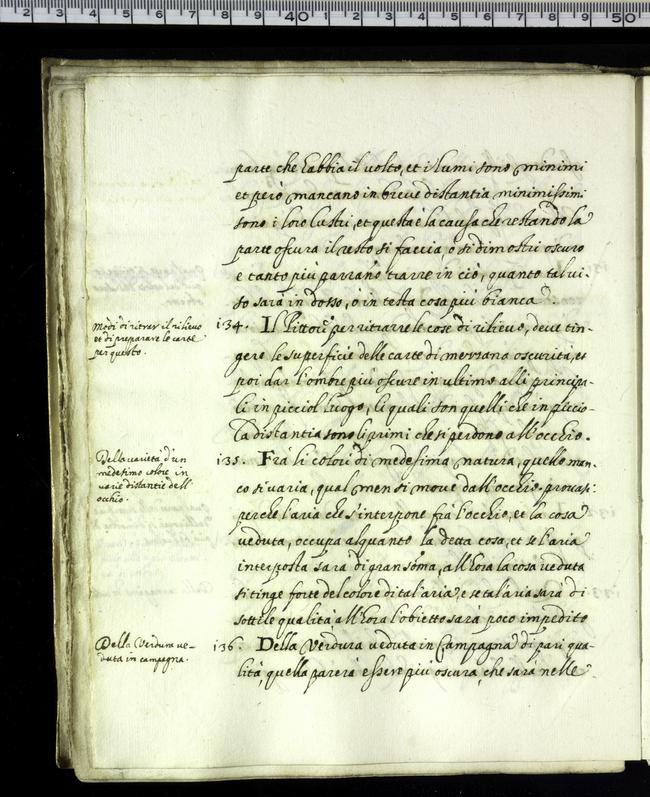 parte che habbia il volto, et i lumi sono minimi
et però mancano in breve distantia minimissimi
sono i loro lustri, et questa è la causa che restando la
parte oscura il resto si faccia, o si dimostri oscuro
e tanto più parrano trarre in ciò, quanto tal vi-
so sarà in dosso, ò in testa cosa più bianca.
Modi di ritrar il rilievo
et di preparare le carte
per questo.
134. Il Pittore per ritrarre le cose di rilievo, deve tin-
gere le superficie delle carte di mezzana oscurità, et
poi dar l'ombre più oscure in ultimo alli principa-
li in picciol luogo, li quali son quelli che in piccio-
la distantia sono li primi che si perdono all'occhio.
Della varietà d'un
medesimo colore in
varie distantie dell'
occhio.
135. Frà li colori di medesima natura, quello man-
co si varia, qual men si move dall'occhio provasi:
perche l'aria che s'interpone frà l'occhio, et la cosa
veduta, occupa alquanto la detta cosa, et se l'aria
interposta sarà di gran soma, all'hora la cosa veduta
si tinge forte del colore di tal'aria, e se tal aria sarà di
sottile qualità, all'hora l'obietto sarà poco impedito
Della Verdura ve-
duta in campagna.
136. Della Verdura veduta in Campagna di pari qua-
lità, quella parerà essere più oscura, che sarà nelle